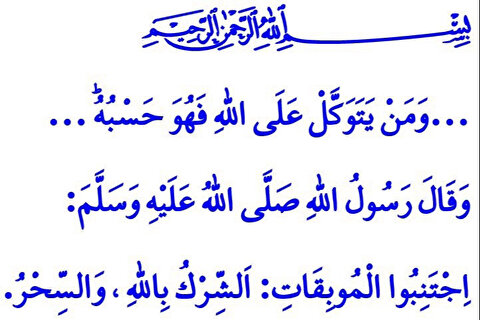 بِسْمِ اللهِ الرَّحْمٰنِ الرَّحِيمِ
...وَمَنْ يَتَوَكَّلْ عَلَى اللهِ فَهُوَ حَسْبُهُۜ ...
وَقَالَ رَسُولُ اللهِ صَلَّى اللهُ عَلَيْهِ وَسَلَّمَ:
اِجْتَنِبُوا الْمُوبِقَاتِ: اَلشِّرْكُ بِاللهِ، وَالسِّحْرُ.